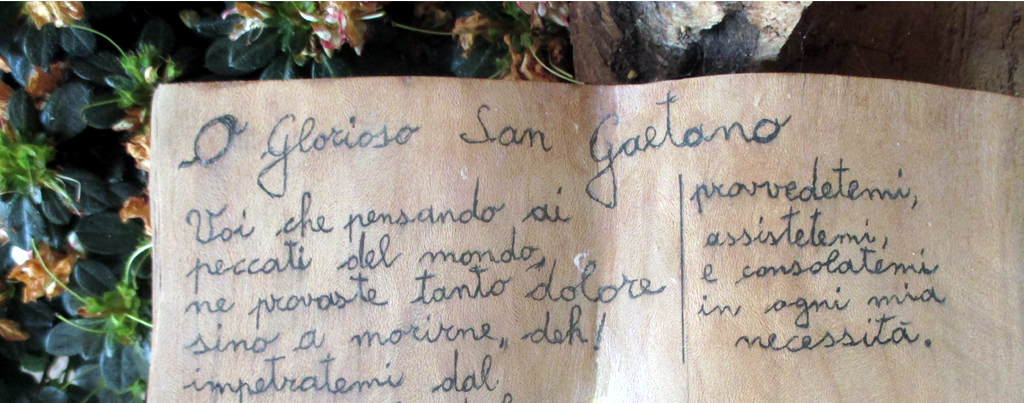 O Glorioso San Gaetano
Voi che pensando ai
peccati del mondo,
ne provaste tanto dolore
sino a morirne, deh!
impetratemi dal
provvedetemi,
assistetemi,
e consolatemi
in ogni mia
necessità.